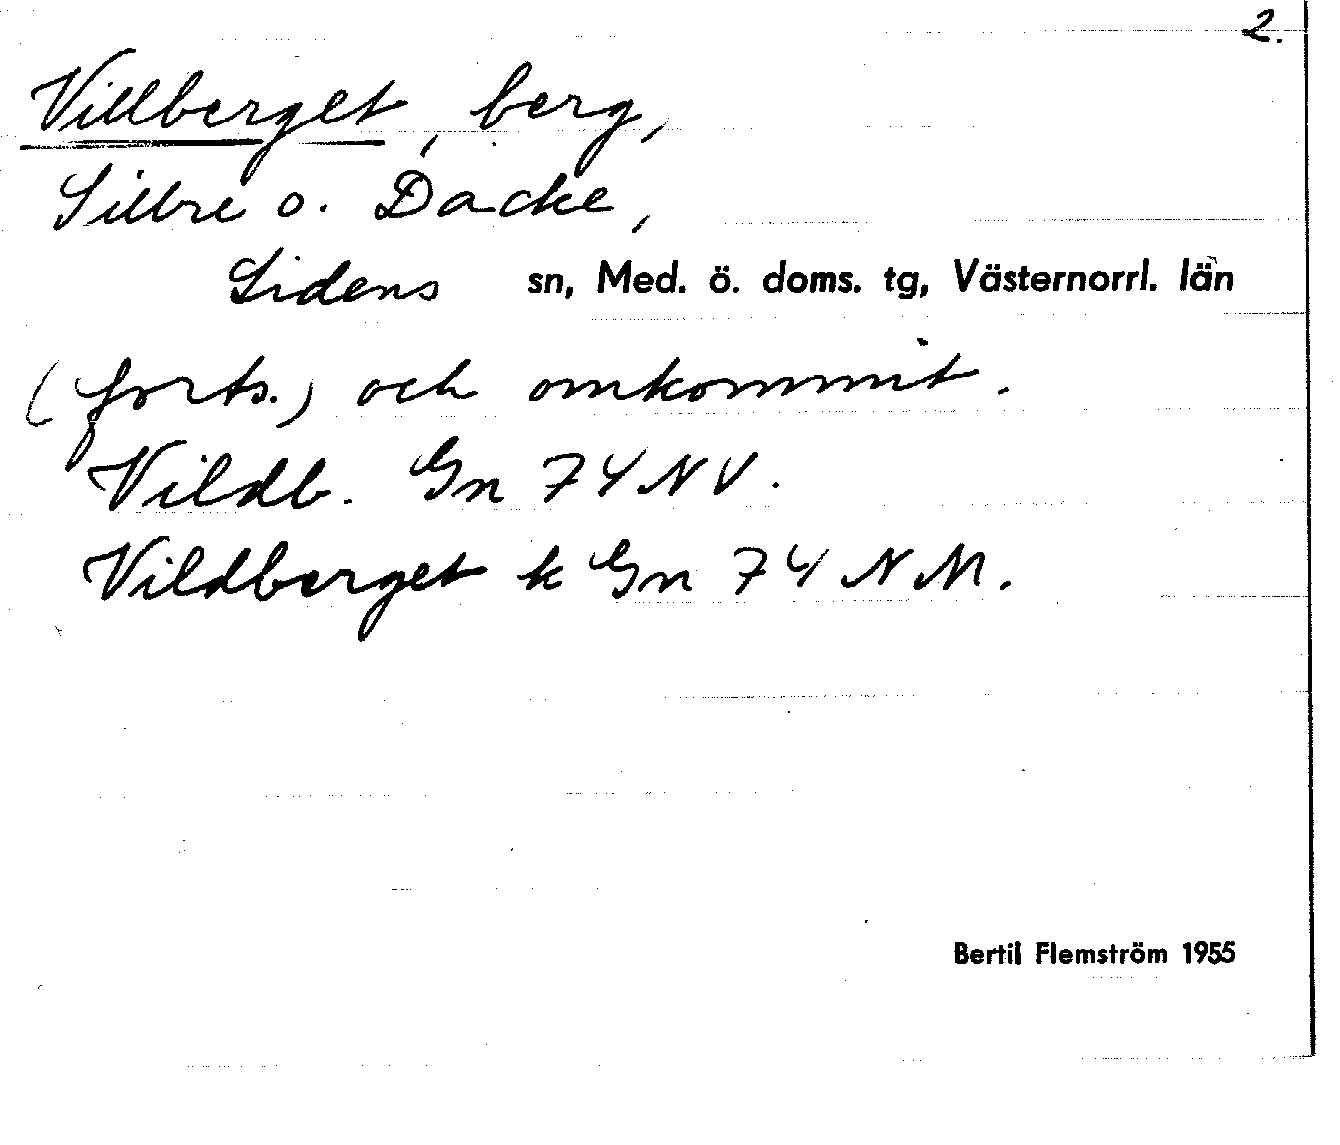 2.
Villberget, berg,
Sillre o. Dacke,
Lidens sn, Med. ö. doms. tg, Västernorrl. län
(forts.) och omkommit.
Vildb. Gn 74 NV.
Vildberget k Gn 74 NM.
Bertil Flemström 1955